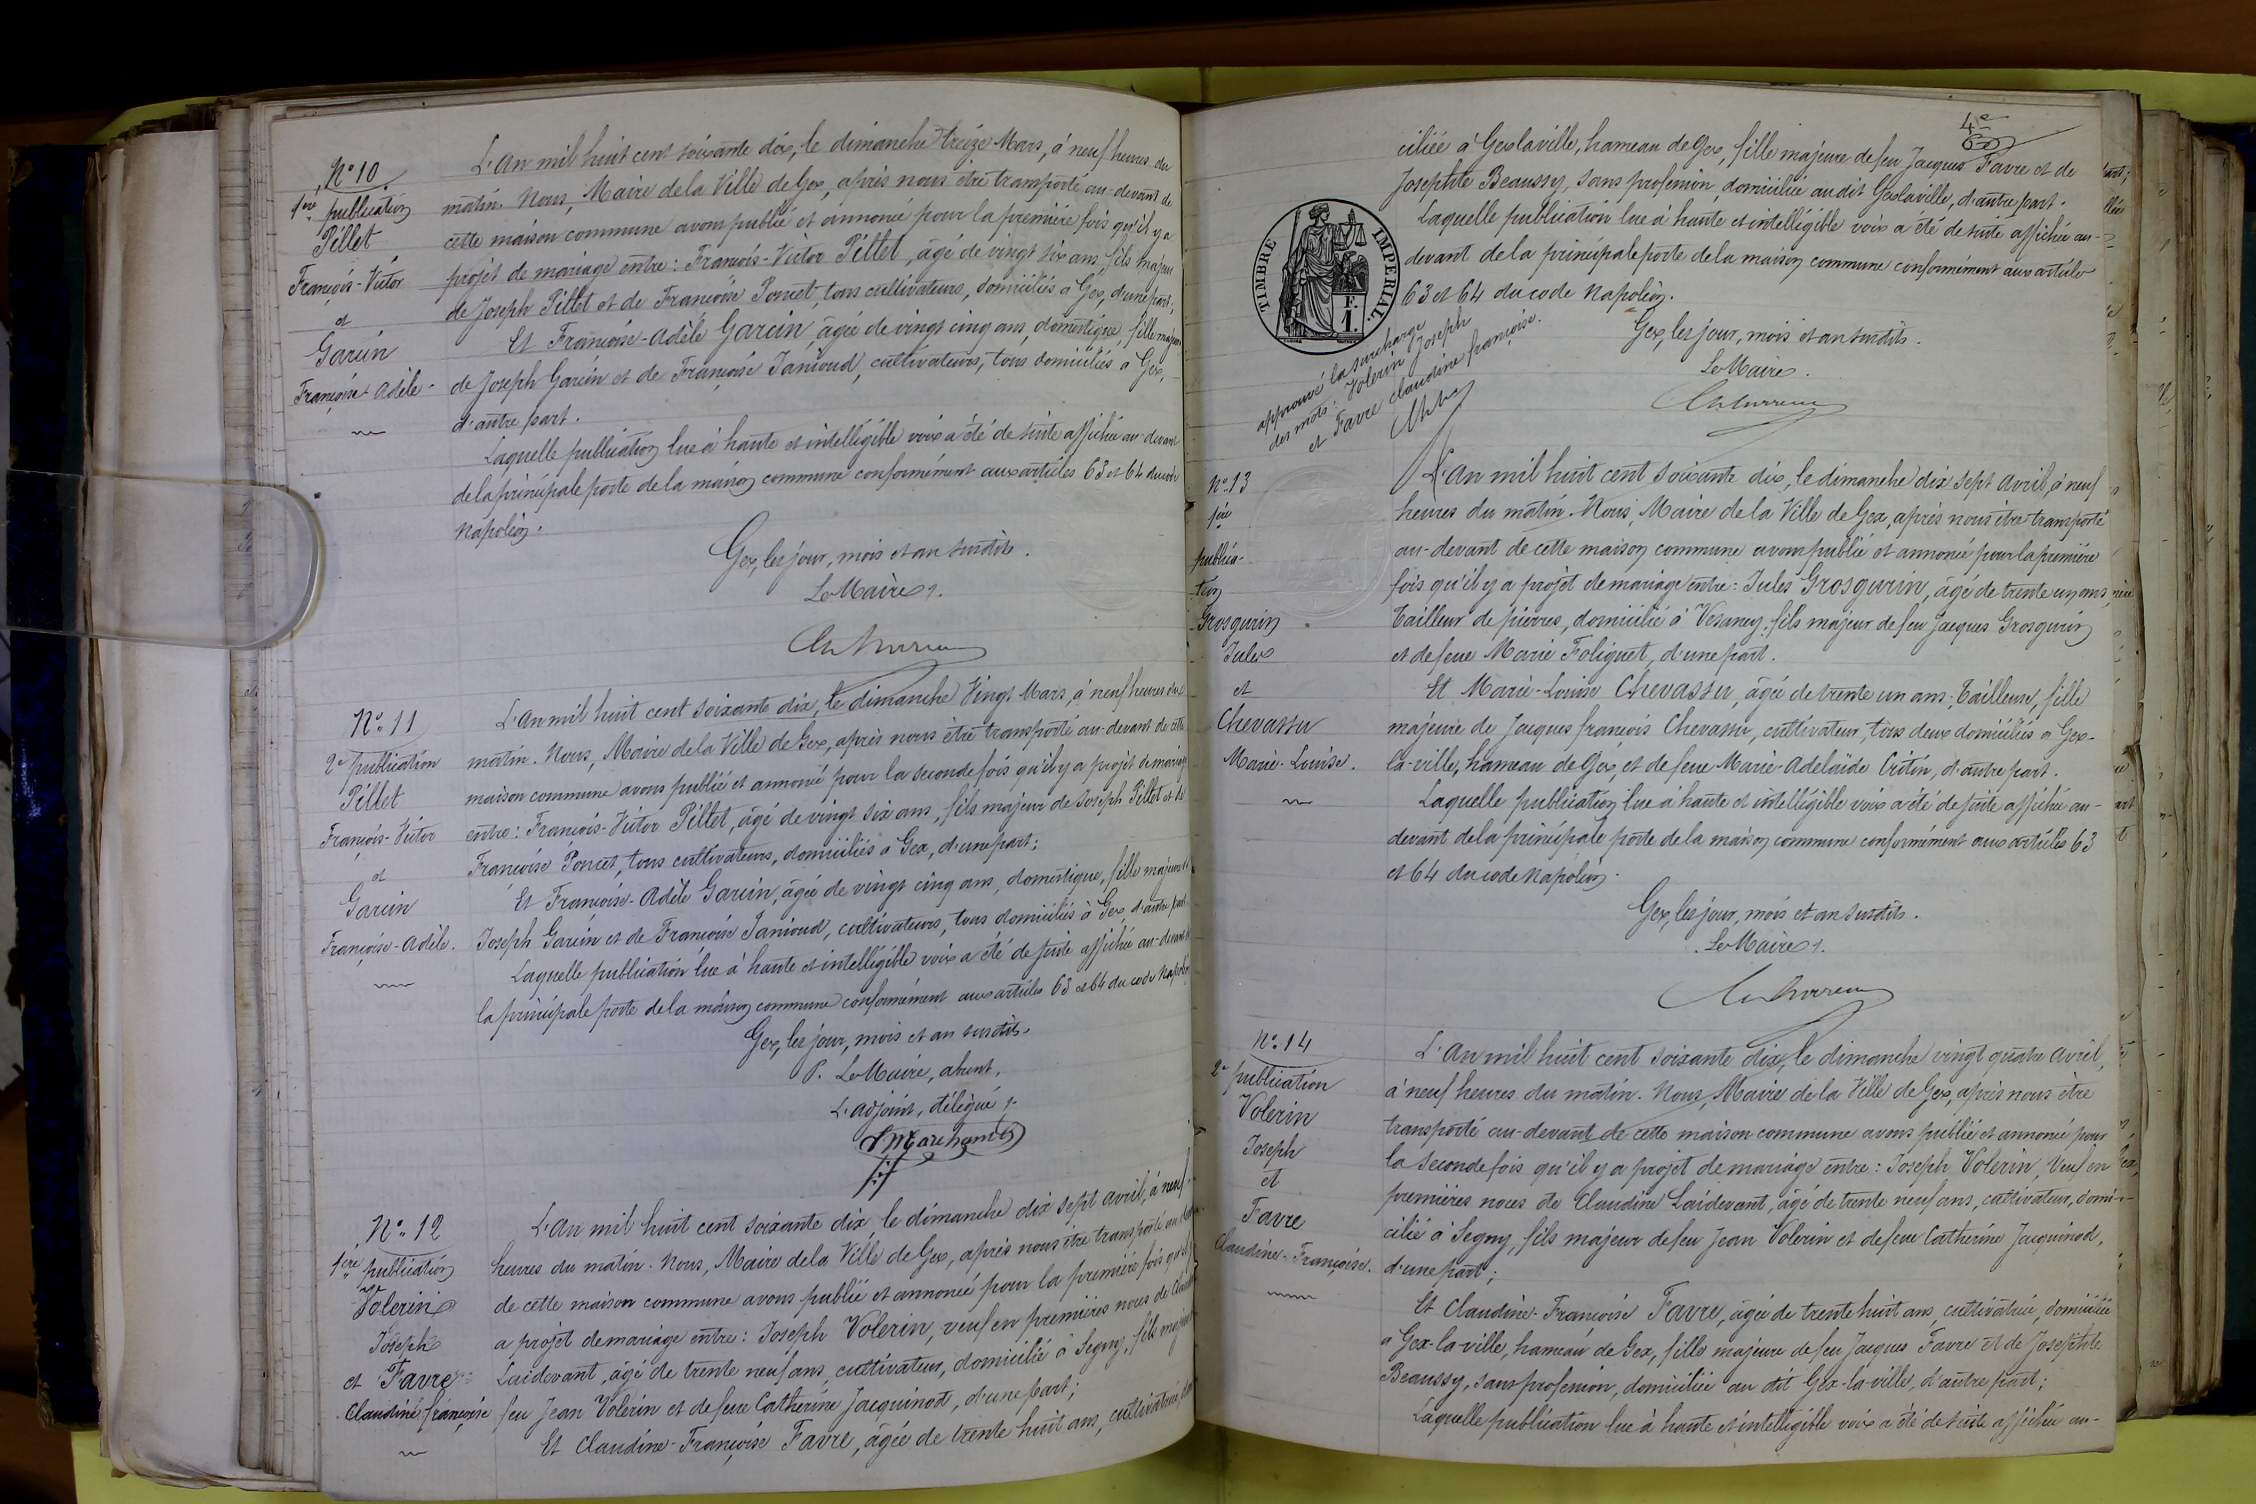 N° 10
1ère publication
Pillet
François-Victor
et
Garcin
Françoise Adèle
L'An mil huit cent soixante dix, le dimanche treize Mars, à neuf heures du
matin. Nous, Maire de la Ville de Gex, après nous être transporté au-devant de
cette maison commune avons publié et annoncé pour la première fois qu'il y a
projet de mariage entre: François-Victor Pillet, âgé de vingt six ans, fils majeur
de Joseph Pillet et de Françoise Poncet, tous cultivateurs, domiciliés à Gex, d'une part;
Et Françoise-Adèle Garcin, âgée de vingt cinq ans, domestique, fille majeure
de Joseph Garcin et de Françoise Janioud, cultivateurs, tous domiciliés à Gex,
d'autre part.
Laquelle publication lue à haute et intelligible voix a été de suite affichée au-devant
de la principale porte de la maison commune conformément aux articles 63 et 64 du code
Napoléon.
Gex, les jour, mois et an susdits.
Le Maire
N° 11
2e publication
Pillet
François-Victor
et
Garcin
Françoise-Adèle.
L'An mil huit cent soixante dix, le dimanche Vingt Mars, à neuf heures du
matin. Nous, Maire de la Ville de Gex, après nous être transporté au-devant de cette
maison commune avons publié et annoncé pour la seconde fois qu'il y a projet de mariage
entre: François-Victor Pillet, âgé de vingt six ans, fils majeur de Joseph Pillet et de
Françoise Poncet, tous cultivateurs, domiciliés à Gex, d'une part;
Et Françoise-Adèle Garcin, âgée de vingt cinq ans, domestique, fille majeure de
Joseph Garcin et de Françoise Janioud, cultivateurs, tous domiciliés à Gex, d'autre part.
Laquelle publication lue à haute et intelligible voix a été de suite affichée au-devant de
la principale porte de la maison commune conformément aux articles 63 et 64 du code Napoléon
Gex, les jour, mois et an susdits.
P. Le Maire, absent,
L'adjoint, délégué
Marchand
N° 12
1ère publication
Volerin
Joseph
et Favre
Claudine françoise
L'An mil huit cent soixante dix, le dimanche dix sept avril, à neuf
heures du matin. Nous, Maire de la Ville de Gex, après nous être transporté au devant
de cette maison commune avons publié et annoncé pour la première fois qu'il y
a projet de mariage entre: Joseph Volerin, veuf en premières noces de Claudine
Laidevant, âgé de trente neuf ans, cultivateur, domicilié à Segny, fils majeur
feu Jean Volerin et de feue Catherine Jacquinod, d'une part;
Et Claudine-Françoise Favre, âgée de trente huit ans, cultivatrice, domi
4e
ciliée à Gexlaville, hameau de Gex, fille majeure de feu Jacques Favre et de
Josephte Beaussy, sans profession, domiciliée audit Gexlaville, d'autre part.
Laquelle publication lue à haute et intelligible voix a été de suite affichée au-
devant de la principale porte de la maison commune conformément aux articles
63 et 64 du code Napoléon.
Gex, les jour, mois et an susdits.
Le Maire.
TIMBRE IMPERIAL.
E. I.
approuvé la surcharge
des mots: Volerin Joseph
et Favre Claudine françoise.
N° 13
1ère
publica-
tion
Grosgurin
Jules
et
Chevassu
Marie-Louise.
L'An mil huit cent soixante dix, le dimanche dix sept avril, à neuf
heures du matin. Nous, Maire de la Ville de Gex, après nous être transporté
au-devant de cette maison commune avons publié et annoncé pour la première
fois qu'il y a projet de mariage entre: Jules Grosgurin, âgé de trente un ans,
tailleur de pierres, domicilié à Vesancy, fils majeur de feu Jacques Grosgurin
et de feue Marie Foliguet, d'une part.
Et Marie-Louise Chevassu, âgée de trente un ans, tailleuse, fille
majeure de Jacques françois Chevassu, cultivateur, tous deux domiciliés à Gex-
la-ville, hameau de Gex, et de feue Marie-Adelaïde Critin, d'autre part.
Laquelle publication lue à haute et intelligible voix a été de suite affichée au-
devant de la principale porte de la maison commune conformément aux articles 63
et 64 du code Napoléon.
Gex, les jour, mois et an susdits.
Le Maire
N° 14
2e publication
Volerin
Joseph
et
Favre
Claudine-Françoise.
L'An mil huit cent soixante dix, le dimanche vingt quatre avril,
à neuf heures du matin. Nous, Maire de la Ville de Gex, après nous être
transporté au-devant de cette maison commune avons publié et annoncé pour
la seconde fois qu'il y a projet de mariage entre: Joseph Volerin, Veuf en
premières noces de Claudine Laidevant, âgé de trente neuf ans, cultivateur, domi-
cilié à Segny, fils majeur de feu Jean Volerin et de feue Catherine Jacquinod,
d'une part;
Et Claudine-Françoise Favre, âgée de trente huit ans, cultivatrice, domiciliée
à Gex-la-ville, hameau de Gex, fille majeure de feu Jacques Favre et de Josephte
Beaussy, sans profession, domiciliée au dit Gex-la-ville, d'autre part;
Laquelle publication lue à haute et intelligible voix a été de suite affichée au-